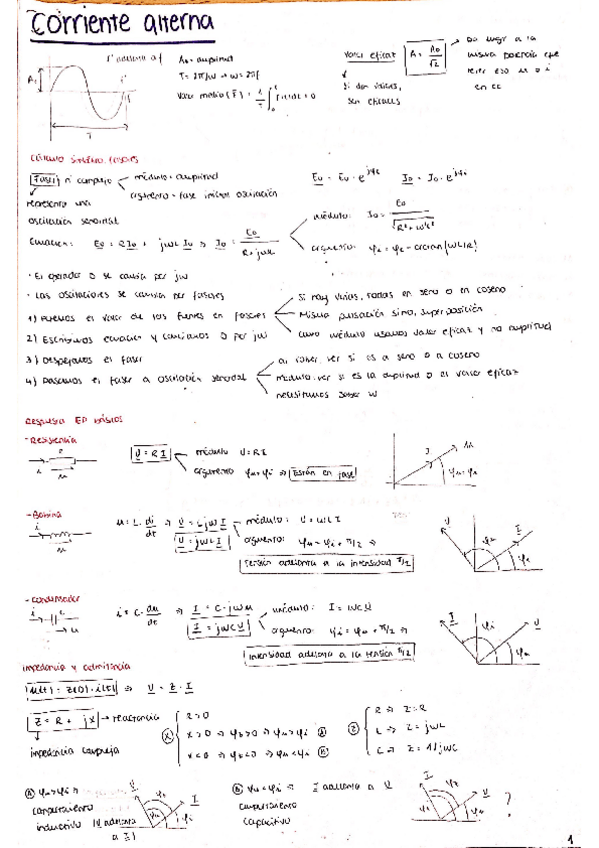 Corriente alterna
f' adelanta a f
A₀ = amplitud
T = 2π/ω → ω = 2πf
Valor medio (F) = 1/T ∫ f(t)dt = 0
A₀
T
Valor eficaz A = A₀/√2
Si dan valores, son eficaces
Da lugar a la misma potencia que
en cc
Cálculo simbólico: fasores
Fasor nº complejo
módulo = amplitud
argumento = fase inicial oscilación
representa una oscilación senoidal
E₀ = E₀ · e^jφe
I₀ = I₀ · e^jφi
Ecuación: E₀ = R I₀ + jωL I₀ ⇒ I₀ = E₀/(R + jωL)
módulo: I₀ = E₀/√(R² + ω²L²)
argumento: φi = φe - arctan(ωL/R)
· El operador D se cambia por jω
· Las oscilaciones se cambia por fasores
1) Ponemos el valor de las fuentes en fasores
Si hay varias, todas en seno o en coseno
Misma pulsación sino, superposición
como módulo usamos valor eficaz y no amplitud
2) Escribimos ecuación y cambiamos D por jω
3) Despejamos el fasor
4) Pasamos el fasor a oscilación senoidal
al volver, ver si es a seno o a coseno
módulo: ver si es la amplitud o el valor eficaz
necesitamos saber ω
Respuesta EP básicos
- Resistencia
U = R I
módulo U = RI
argumento φu = φi ⇒ Están en fase
φu = φi
- Bobina
u = L · di/dt ⇒ U = L jω I
U = jωL I
módulo: U = ωL I
argumento: φu = φi + π/2 ⇒
Tensión adelanta a la intensidad π/2
- Condensador
i = C · du/dt ⇒ I = C · jω u
I = jωC U
módulo: I = ωC U
argumento: φi = φu + π/2 ⇒
Intensidad adelanta a la tensión π/2
Impedancia y admitancia
u(t) = Z(D) · i(t) ⇒ U = Z · I
Z = R + jX → reactancia
impedancia compleja
R > 0
X > 0 ⇒ φz > 0 ⇒ φu > φi
X < 0 ⇒ φz < 0 ⇒ φu < φi
R ⇒ Z = R
L ⇒ Z = jωL
C ⇒ Z = 1/jωC
φu > φi ⇒
comportamiento inductivo (U adelanta a I)
φu < φi ⇒ I adelanta a U
comportamiento capacitivo
?
1